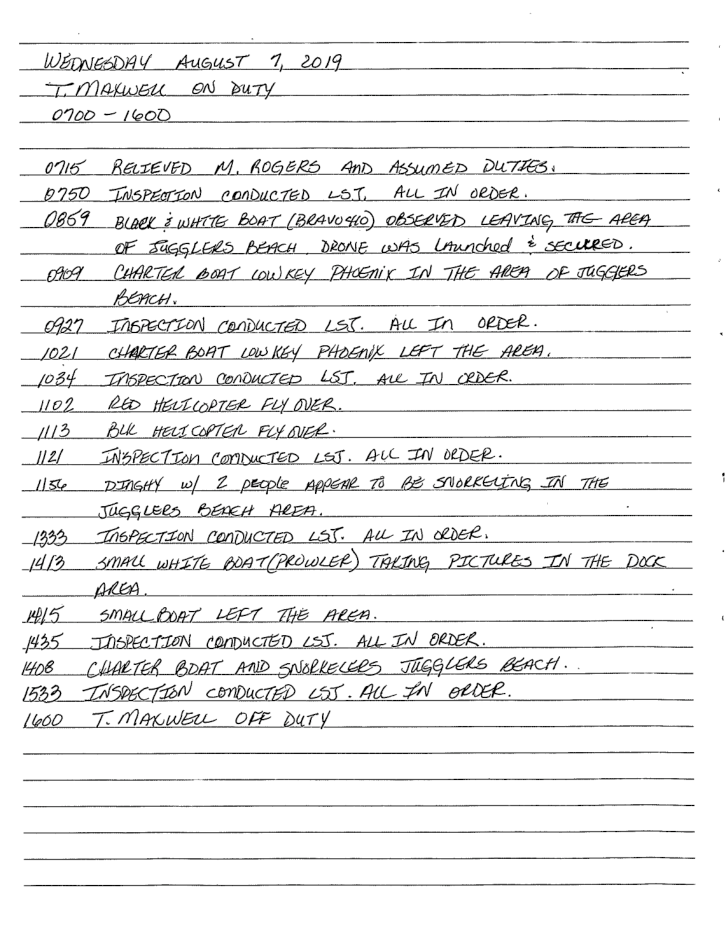 WEDNESDAY AUGUST 7, 2019
T. MAXWELL ON DUTY
0700 - 1600
0715 RELIEVED M. ROGERS AND ASSUMED DUTIES.
0750 INSPECTION CONDUCTED LSJ. ALL IN ORDER.
0859 BLACK & WHITE BOAT (BRAVO 410) OBSERVED LEAVING THE AREA
OF JUGGLERS BEACH. DRONE WAS LAUNCHED & SECURED.
0909 CHARTER BOAT LOW KEY PHOENIX IN THE AREA OF JUGGLERS
BEACH.
0927 INSPECTION CONDUCTED LSJ. ALL IN ORDER.
1021 CHARTER BOAT LOW KEY PHOENIX LEFT THE AREA.
1034 INSPECTION CONDUCTED LSJ. ALL IN ORDER.
1102 RED HELICOPTER FLY OVER.
1113 BLK HELICOPTER FLY OVER.
1121 INSPECTION CONDUCTED LSJ. ALL IN ORDER.
1156 DINGHY w/ 2 PEOPLE APPEAR TO BE SNORKELING IN THE
JUGGLERS BEACH AREA.
1333 INSPECTION CONDUCTED LSJ. ALL IN ORDER.
1413 SMALL WHITE BOAT (PROWLER) TAKING PICTURES IN THE DOCK
AREA.
1415 SMALL BOAT LEFT THE AREA.
1435 INSPECTION CONDUCTED LSJ. ALL IN ORDER.
1408 CHARTER BOAT AND SNORKELERS JUGGLERS BEACH.
1533 INSPECTION CONDUCTED LSJ. ALL IN ORDER.
1600 T. MAXWELL OFF DUTY